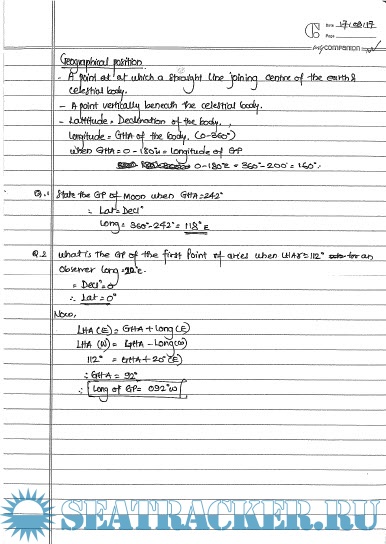 Date 17/08/17
Page
My companion
Geographical position
- A point at at which a straight line joining centre of the earth &
celestial body.
- A point vertically beneath the celestial body.
- Latitude = Declination of the body.
Longitude = GHA of the body. (0-360°)
when GHA = 0-180° = Longitude of GP
0-180°E = 360°-200° = 160°.
Q.1 State the GP of Moon when GHA = 242°
∴ Lat = Decl°
Long = 360°-242° = 118°E
Q.2 What is the GP of the first Point of aries when LHAϒ = 112° for an
observer long = 20°E.
= Decl° = 0
∴ Lat = 0°
Now,
LHA (E) = GHA + Long (E)
LHA (W) = GHA - Long (W)
112° = GHA + 20° (E)
∴ GHA = 92°
∴ Long of GP = 092°W
SEATRACKER.RU